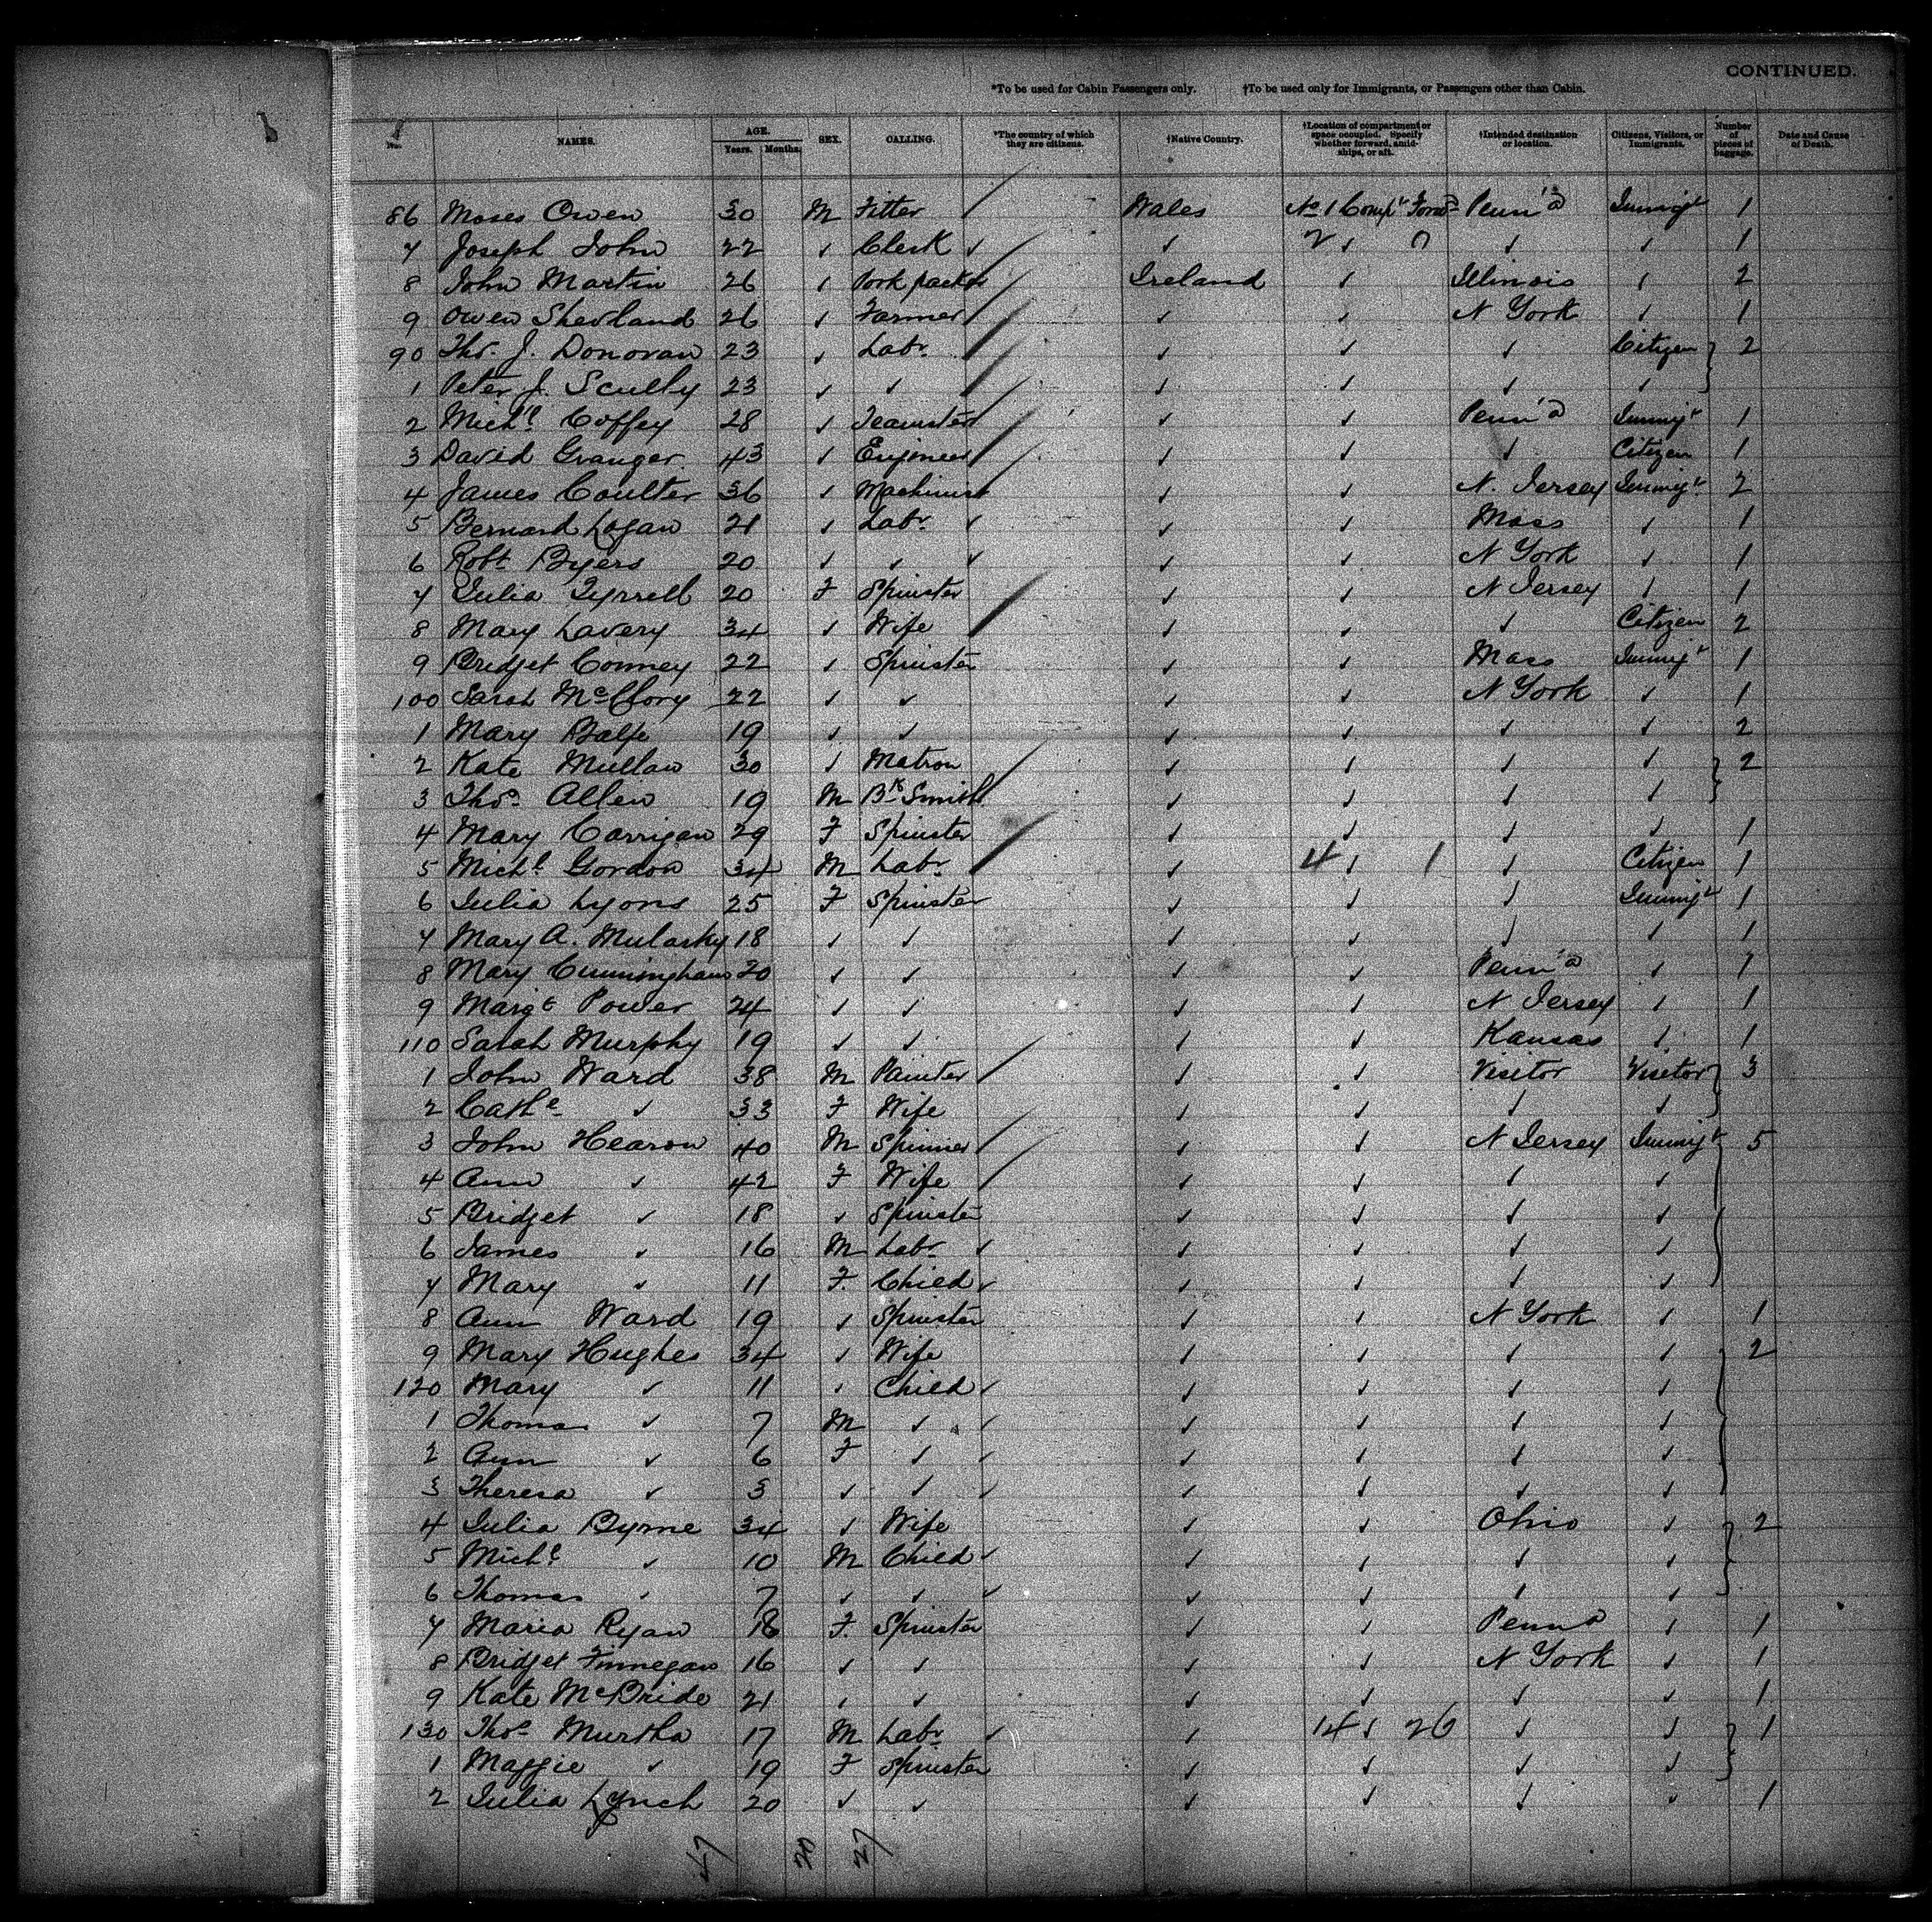 CONTINUED.
*To be used for Cabin Passengers only. †To be used only for Immigrants, or Passengers other than Cabin.
No. NAMES. AGE. Years. Months. SEX. CALLING. *The country of which they are citizens. †Native Country. †Location of compartment or space occupied. Specify whether forward, amidships, or aft. †Intended destination or location. Citizens, Visitors, or Immigrants. Number of pieces of baggage. Date and Cause of Death.
86 Moses Owen 30 M Fitter Wales No 1 Compt Forwd Penn'a Immigt 1
7 Joseph John 22 ✓ Clerk ✓ ✓ 2 ✓ ✓ ✓ 1
8 John Martin 26 ✓ Pork packer Ireland ✓ Illinois ✓ 2
9 Owen Shevland 26 ✓ Farmer ✓ ✓ N York ✓ 1
90 Thos. J. Donovan 23 ✓ Labr ✓ ✓ ✓ Citizen 2
1 Peter J. Scully 23 ✓ ✓ ✓ ✓ ✓ ✓
2 Michl Coffey 28 ✓ Teamster ✓ ✓ Penn'a Immigt 1
3 David Granger 43 ✓ Engineer ✓ ✓ ✓ Citizen 1
4 James Coulter 36 ✓ Machinist ✓ ✓ N. Jersey Immigt 2
5 Bernard Logan 21 ✓ Labr ✓ ✓ ✓ Mass ✓ 1
6 Robt Byers 20 ✓ ✓ ✓ ✓ ✓ N York ✓ 1
7 Julia Tyrrell 20 F Spinster ✓ ✓ N Jersey ✓ 1
8 Mary Lavery 34 ✓ Wife ✓ ✓ ✓ Citizen 2
9 Bridget Conney 22 ✓ Spinster ✓ ✓ Mass Immigt 1
100 Sarah McClory 22 ✓ ✓ ✓ ✓ N York ✓ 1
1 Mary Balfe 19 ✓ ✓ ✓ ✓ ✓ ✓ 2
2 Kate Mullan 30 ✓ Matron ✓ ✓ ✓ ✓ 2
3 Thos Allen 19 M Bk Smith ✓ ✓ ✓ ✓
4 Mary Carrigan 29 F Spinster ✓ ✓ ✓ ✓ 1
5 Michl Gordon 34 M Labr ✓ 4 ✓ 1 ✓ Citizen 1
6 Julia Lyons 25 F Spinster ✓ ✓ ✓ Immigt 1
7 Mary A. Mulasky 18 ✓ ✓ ✓ ✓ ✓ ✓ 1
8 Mary Cunningham 20 ✓ ✓ ✓ ✓ Penn'a ✓ 1
9 Margt Power 24 ✓ ✓ ✓ ✓ N Jersey ✓ 1
110 Sarah Murphy 19 ✓ ✓ ✓ ✓ Kansas ✓ 1
1 John Ward 38 M Painter ✓ ✓ Visitor Visitor 3
2 Cathe ✓ 33 F Wife ✓ ✓ ✓ ✓
3 John Hearon 40 M Spinner ✓ ✓ N Jersey Immigt 5
4 Ann ✓ 42 F Wife ✓ ✓ ✓ ✓
5 Bridget ✓ 18 ✓ Spinster ✓ ✓ ✓ ✓
6 James ✓ 16 M Labr ✓ ✓ ✓ ✓ ✓
7 Mary ✓ 11 F. Child ✓ ✓ ✓ ✓ ✓
8 Ann Ward 19 ✓ Spinster ✓ ✓ N York ✓ 1
9 Mary Hughes 34 ✓ Wife ✓ ✓ ✓ ✓ 2
120 Mary ✓ 11 ✓ Child ✓ ✓ ✓ ✓ ✓
1 Thomas ✓ 7 M ✓ ✓ ✓ ✓ ✓ ✓
2 Ann ✓ 6 F ✓ ✓ ✓ ✓ ✓ ✓
3 Theresa ✓ 3 ✓ ✓ ✓ ✓ ✓ ✓ ✓
4 Julia Byrne 34 ✓ Wife ✓ ✓ Ohio ✓ 2
5 Michl ✓ 10 M Child ✓ ✓ ✓ ✓ ✓
6 Thomas ✓ 7 ✓ ✓ ✓ ✓ ✓ ✓ ✓
7 Maria Ryan 18 F. Spinster ✓ ✓ Penna ✓ 1
8 Bridget Finnegan 16 ✓ ✓ ✓ ✓ N York ✓ 1
9 Kate McBride 21 ✓ ✓ ✓ ✓ ✓ ✓ 1
130 Thos Murtha 17 M Labr ✓ ✓ 14 ✓ 26 ✓ ✓ 1
1 Maggie ✓ 19 F Spinster ✓ ✓ ✓ ✓
2 Julia Lynch 20 ✓ ✓ ✓ ✓ ✓ ✓ 1
47 20 27